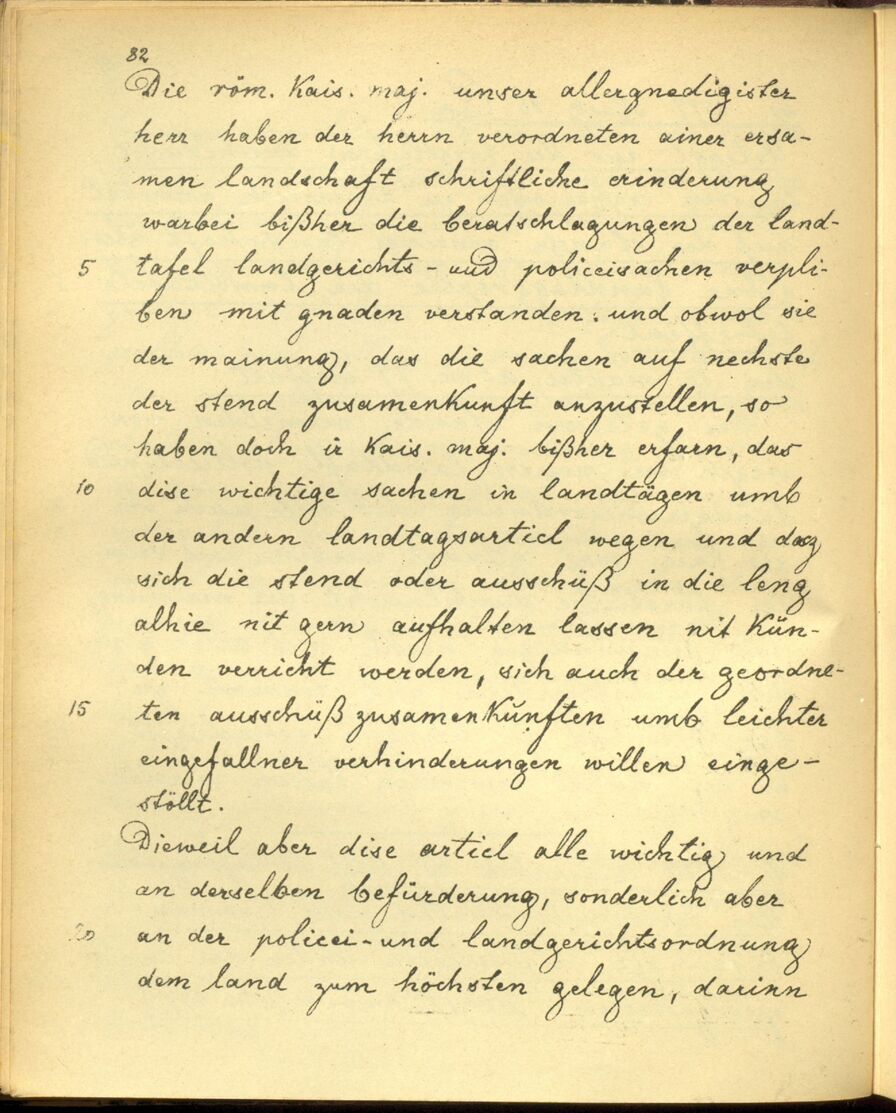 82
Die röm. Kais. maj. unser allergnedigister
herr haben der herrn verordneten ainer ersa-
men landschaft schriftliche erinderung
warbei bißher die beratschlagungen der land-
5 tafel landgerichts- und policeisachen verpli-
ben mit gnaden verstanden. und obwol sie
der mainung, das die sachen auf nechste
der stend zusamenkunft anzustellen, so
haben doch ir Kais. maj. bißher erfarn, das
10 dise wichtige sachen in landtägen umb
der andern landtagsarticl wegen und dasz
sich die stend oder ausschüß in die leng
alhie nit gern aufhalten lassen nit Kün-
den verricht werden, sich auch der geordne-
15 ten ausschüß zusamenKünften umb leichter
eingefallner verhinderungen willen einge-
stöllt.
Dieweil aber dise articl alle wichtig und
an derselben befürderung, sonderlich aber
20 an der policei- und landgerichtsordnung
dem land zum höchsten gelegen, darinn